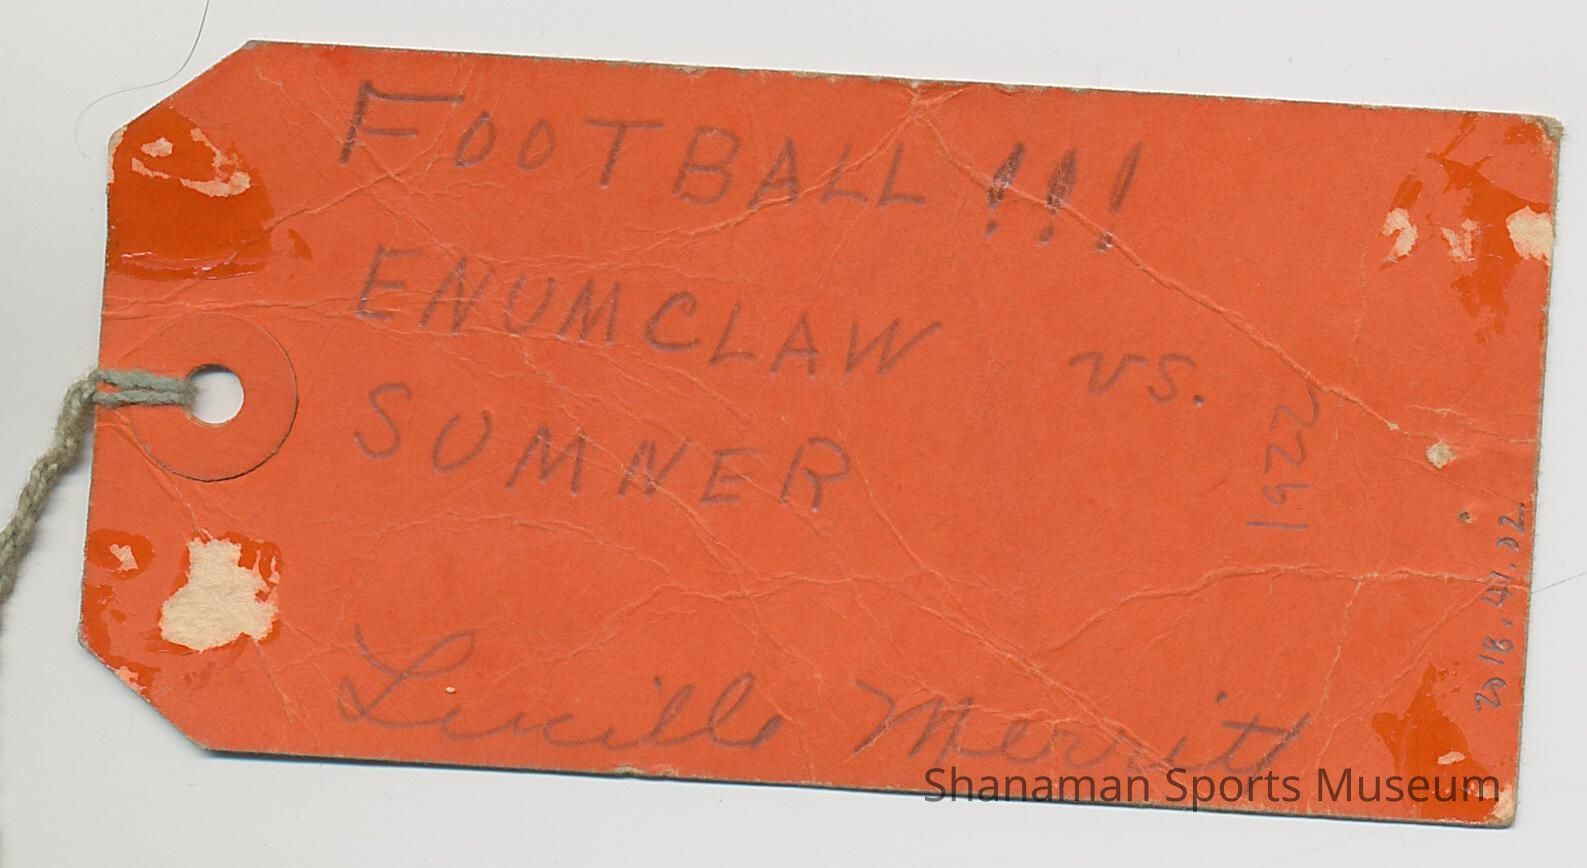 FOOTBALL!!!
ENUMCLAW vs.
SUMNER
1922
Lucille Merritt
2018.41.02
Shanaman Sports Museum